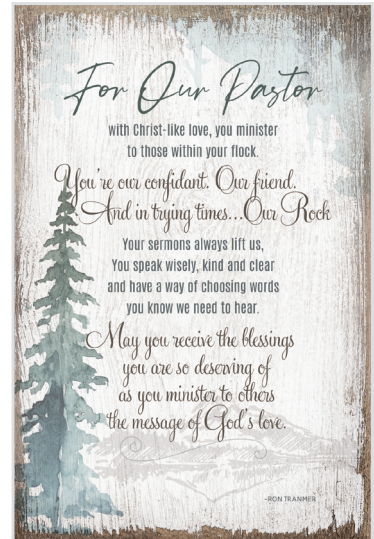 For Our Pastor
with Christ-like love, you minister
to those within your flock.
You're our confidant. Our friend.
And in trying times...Our Rock
Your sermons always lift us,
You speak wisely, kind and clear
and have a way of choosing words
you know we need to hear.
May you receive the blessings
you are so deserving of
as you minister to others
the message of God's love.
-RON TRANMER